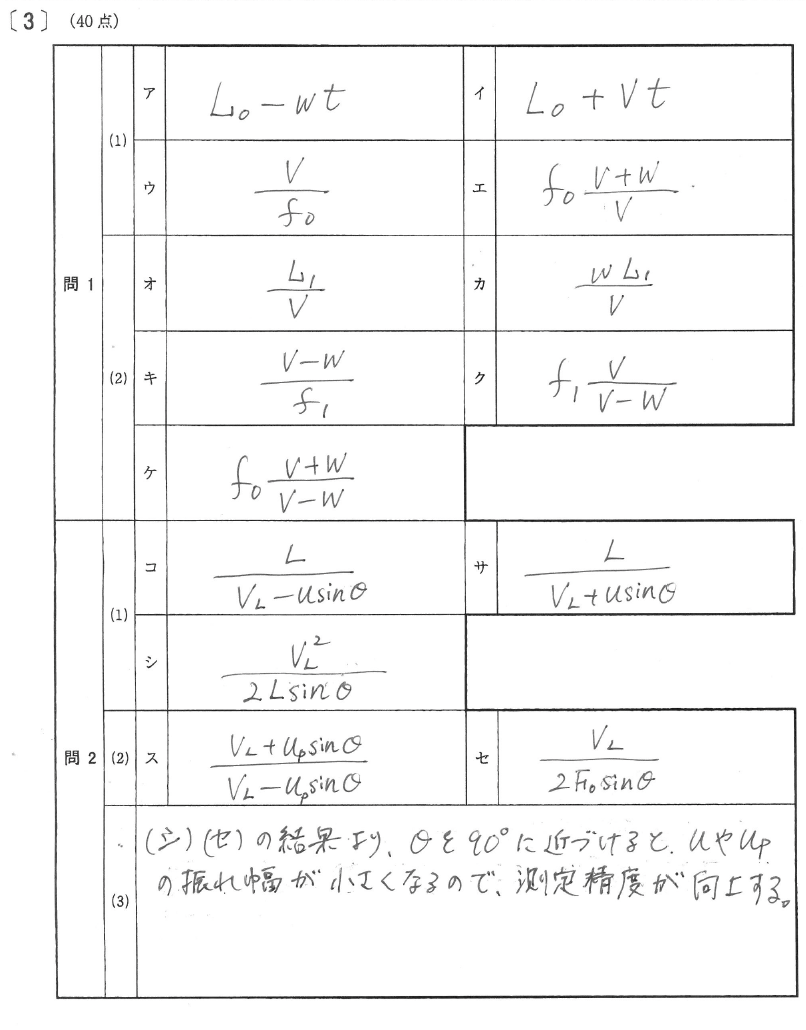 〔3〕 (40点)
問1
(1)
ア L₀ − wt
イ L₀ + Vt
ウ V/f₀
エ f₀ (V+w)/V
(2)
オ L₁/V
カ wL₁/V
キ (V−w)/f₁
ク f₁ V/(V−w)
ケ f₀ (V+w)/(V−w)
問2
(1)
コ L/(V_L − u sinθ)
サ L/(V_L + u sinθ)
シ V_L²/(2L sinθ)
(2)
ス (V_L + u_p sinθ)/(V_L − u_p sinθ)
セ V_L/(2F₀ sinθ)
(3)
(シ)(セ)の結果より、θを90°に近づけると、uやu_p
の振れ幅が小さくなるので、測定精度が向上する。